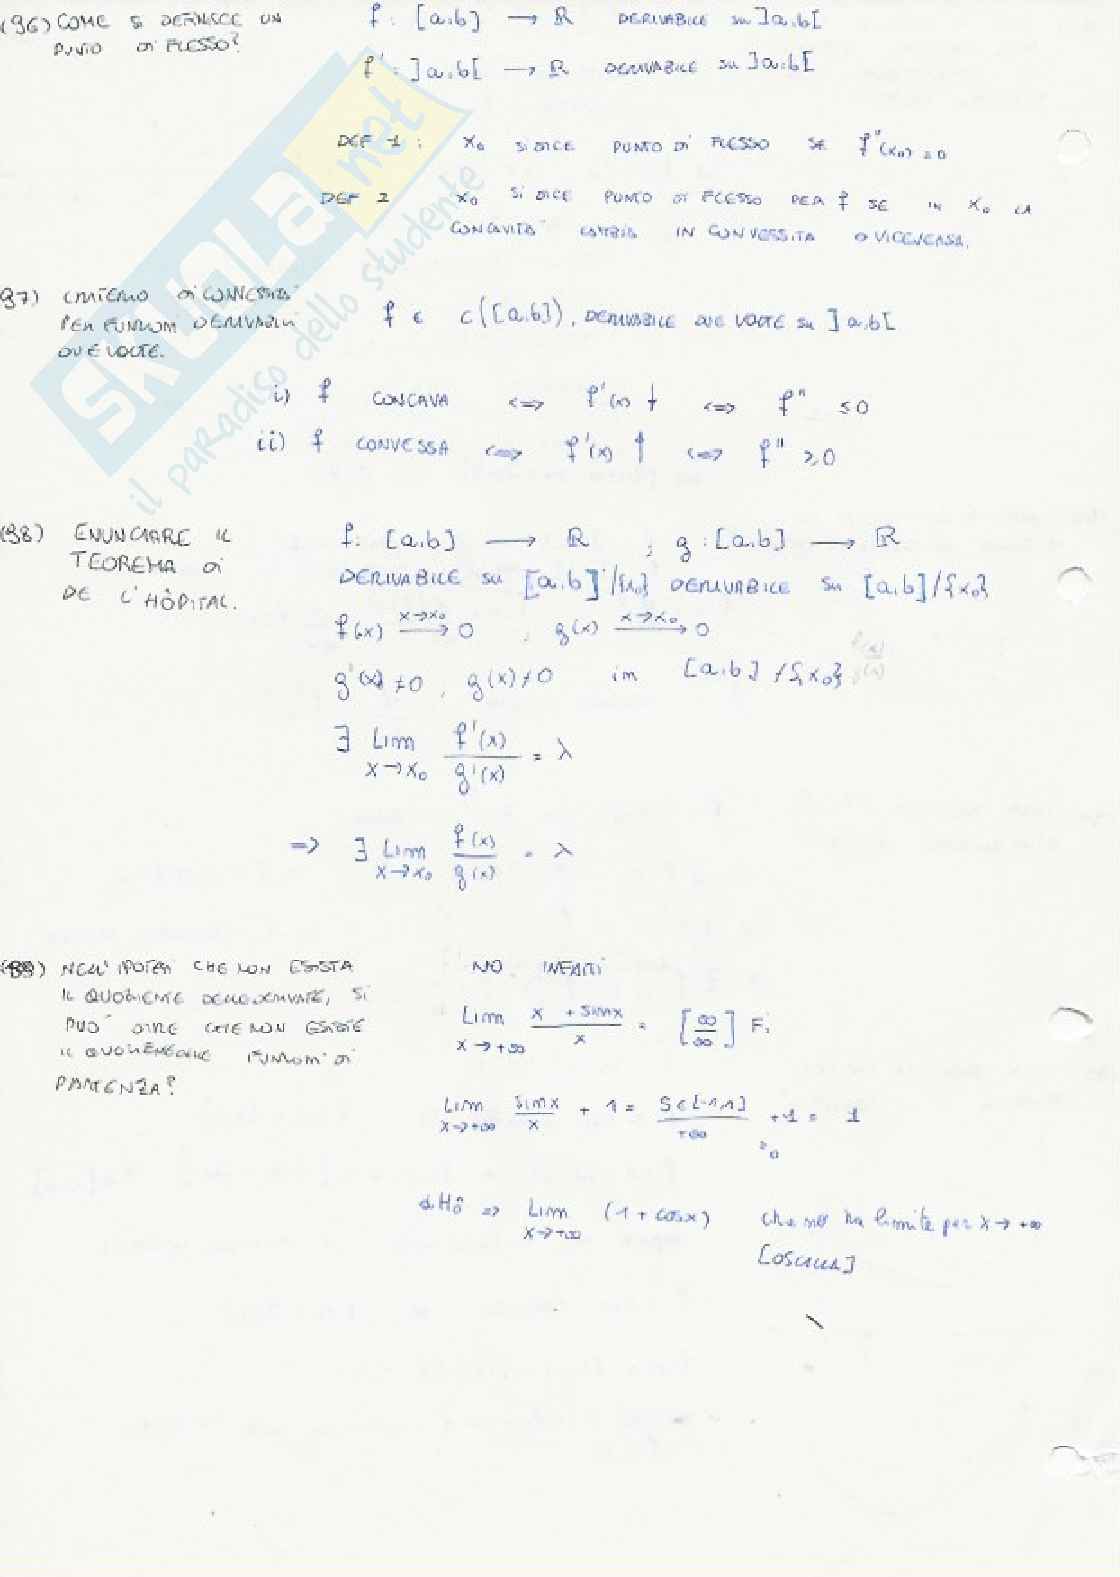 (96) COME SI DEFINISCE UN
PUNTO DI FLESSO?
f : [a,b] → ℝ DERIVABILE su ]a,b[
f' : ]a,b[ → ℝ DERIVABILE su ]a,b[
DEF 1 : x₀ SI DICE PUNTO DI FLESSO SE f''(x₀) = 0
DEF 2 x₀ SI DICE PUNTO DI FLESSO PER f SE IN x₀ LA
CONCAVITÀ CAMBIA IN CONVESSITÀ O VICEVERSA.
97) CRITERIO DI CONVESSITÀ
PER FUNZIONI DERIVABILI
DUE VOLTE.
f ∈ C([a,b]), DERIVABILE DUE VOLTE su ]a,b[
i) f CONCAVA <=> f'(x) ↓ <=> f'' ≤ 0
ii) f CONVESSA <=> f'(x) ↑ <=> f'' ≥ 0
(98) ENUNCIARE IL
TEOREMA DI
DE L'HÔPITAL.
f: [a,b] → ℝ ; g : [a,b] → ℝ
DERIVABILE su [a,b]/{x₀} DERIVABILE su [a,b]/{x₀}
f(x) x→x₀ → 0 , g(x) x→x₀ → 0
g'(x) ≠ 0 , g(x) ≠ 0 in [a,b] /{x₀}
∃ Lim x→x₀ f'(x)/g'(x) = λ
=> ∃ Lim x→x₀ f(x)/g(x) = λ
(99) NELL'IPOTESI CHE NON ESISTA
IL QUOZIENTE DELLE DERIVATE, SI
PUÒ DIRE CHE NON ESISTE
IL QUOZIENTE DELLE FUNZIONI DI
PARTENZA?
NO INFATTI
Lim x→+∞ x + sinx / x = [∞/∞] F.i
Lim x→+∞ sinx/x + 1 = S∈[-1,1]/+∞ +1 = 1
=0
dHô => Lim x→+∞ (1 + cosx) che non ha limite per x→+∞
[OSCILLA]
SKUOLA.net
il paradiso dello studente